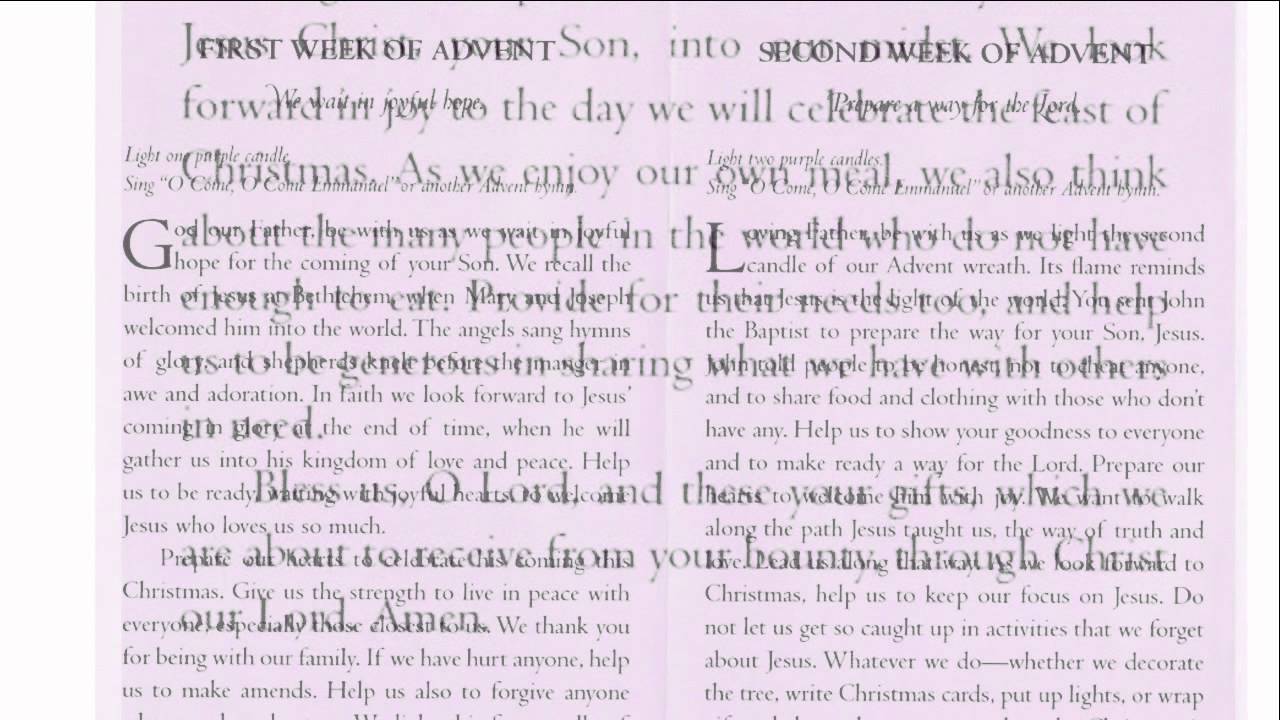 Jesus Christ your Son, into our midst. We look
forward in joy to the day we will celebrate the feast of
Christmas. As we enjoy our own meal, we also think
about the many people in the world who do not have
enough to eat. Provide for their needs too, and help
us to be generous in sharing what we have with others
in need.
Bless us, O Lord, and these your gifts, which we
are about to receive from your bounty, through Christ
our Lord. Amen.
FIRST WEEK OF ADVENT
We wait in joyful hope.
Light one purple candle.
Sing “O Come, O Come Emmanuel” or another Advent hymn.
God our Father, be with us as we wait in joyful
hope for the coming of your Son. We recall the
birth of Jesus at Bethlehem, when Mary and Joseph
welcomed him into the world. The angels sang hymns
of glory, and shepherds knelt before the manger in
awe and adoration. In faith we look forward to Jesus’
coming in glory at the end of time, when he will
gather us into his kingdom of love and peace. Help
us to be ready, waiting with joyful hearts to welcome
Jesus who loves us so much.
Prepare our hearts to celebrate his coming this
Christmas. Give us the strength to live in peace with
everyone, especially those closest to us. We thank you
for being with our family. If we have hurt anyone, help
us to make amends. Help us also to forgive anyone
SECOND WEEK OF ADVENT
Prepare a way for the Lord.
Light two purple candles.
Sing “O Come, O Come Emmanuel” or another Advent hymn.
Loving Father, be with us as we light the second
candle of our Advent wreath. Its flame reminds
us that Jesus is the light of the world. You sent John
the Baptist to prepare the way for your Son, Jesus.
John told people to be honest, not to cheat anyone,
and to share food and clothing with those who don’t
have any. Help us to show your goodness to everyone
and to make ready a way for the Lord. Prepare our
hearts to welcome him with joy. We want to walk
along the path Jesus taught us, the way of truth and
love. Lead us along that way. As we look forward to
Christmas, help us to keep our focus on Jesus. Do
not let us get so caught up in activities that we forget
about Jesus. Whatever we do—whether we decorate
the tree, write Christmas cards, put up lights, or wrap